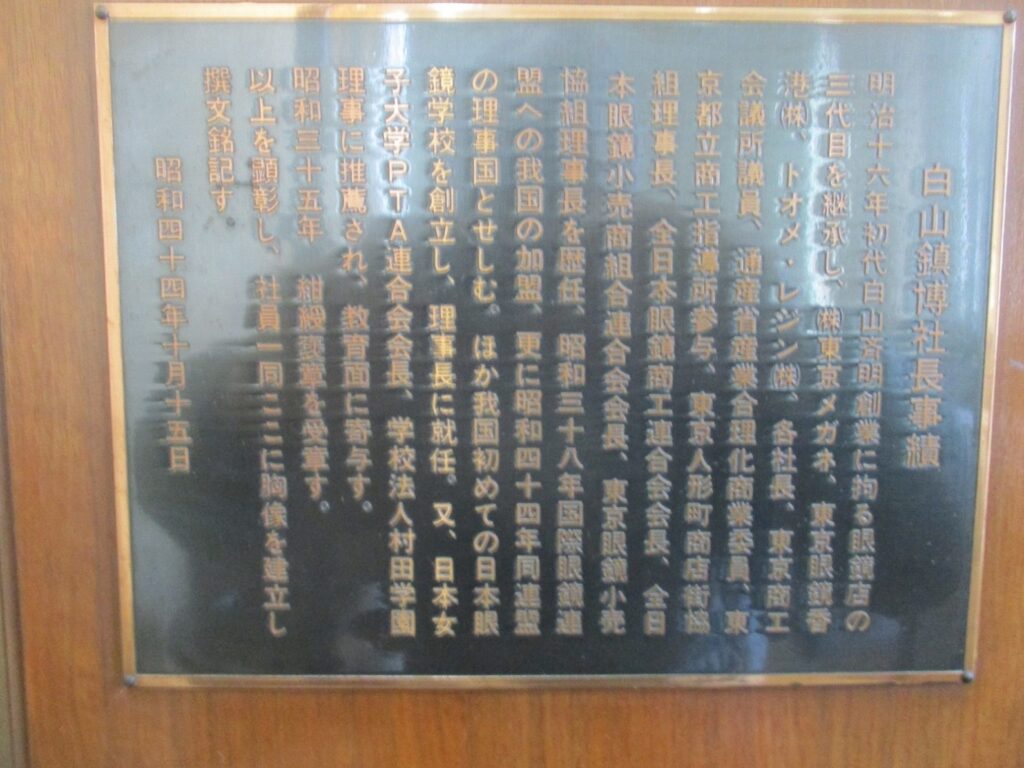 白山鎮博社長事績
明治十六年初代白山斉明創業に拘る眼鏡店の
三代目を継承し、㈱東京メガネ、東京眼鏡香
港㈱、トオメ・レジン㈱、各社長、東京商工
会議所議員、通産省産業合理化商業委員、東
京都立商工指導所参与、東京人形町商店街協
組理事長、全日本眼鏡商工連合会会長、全日
本眼鏡小売商組合連合会会長、東京眼鏡小売
協組理事長を歴任、昭和三十八年国際眼鏡連
盟への我国の加盟、更に昭和四十四年同連盟
の理事国とせしむ。ほか我国初めての日本眼
鏡学校を創立し、理事長に就任。又、日本女
子大学PTA連合会会長、学校法人村田学園
理事に推薦され、教育面に寄与す。
昭和三十五年 紺綬褒章を受章す。
以上を顕彰し、社員一同ここに胸像を建立し
撰文銘記す
昭和四十四年十月十五日